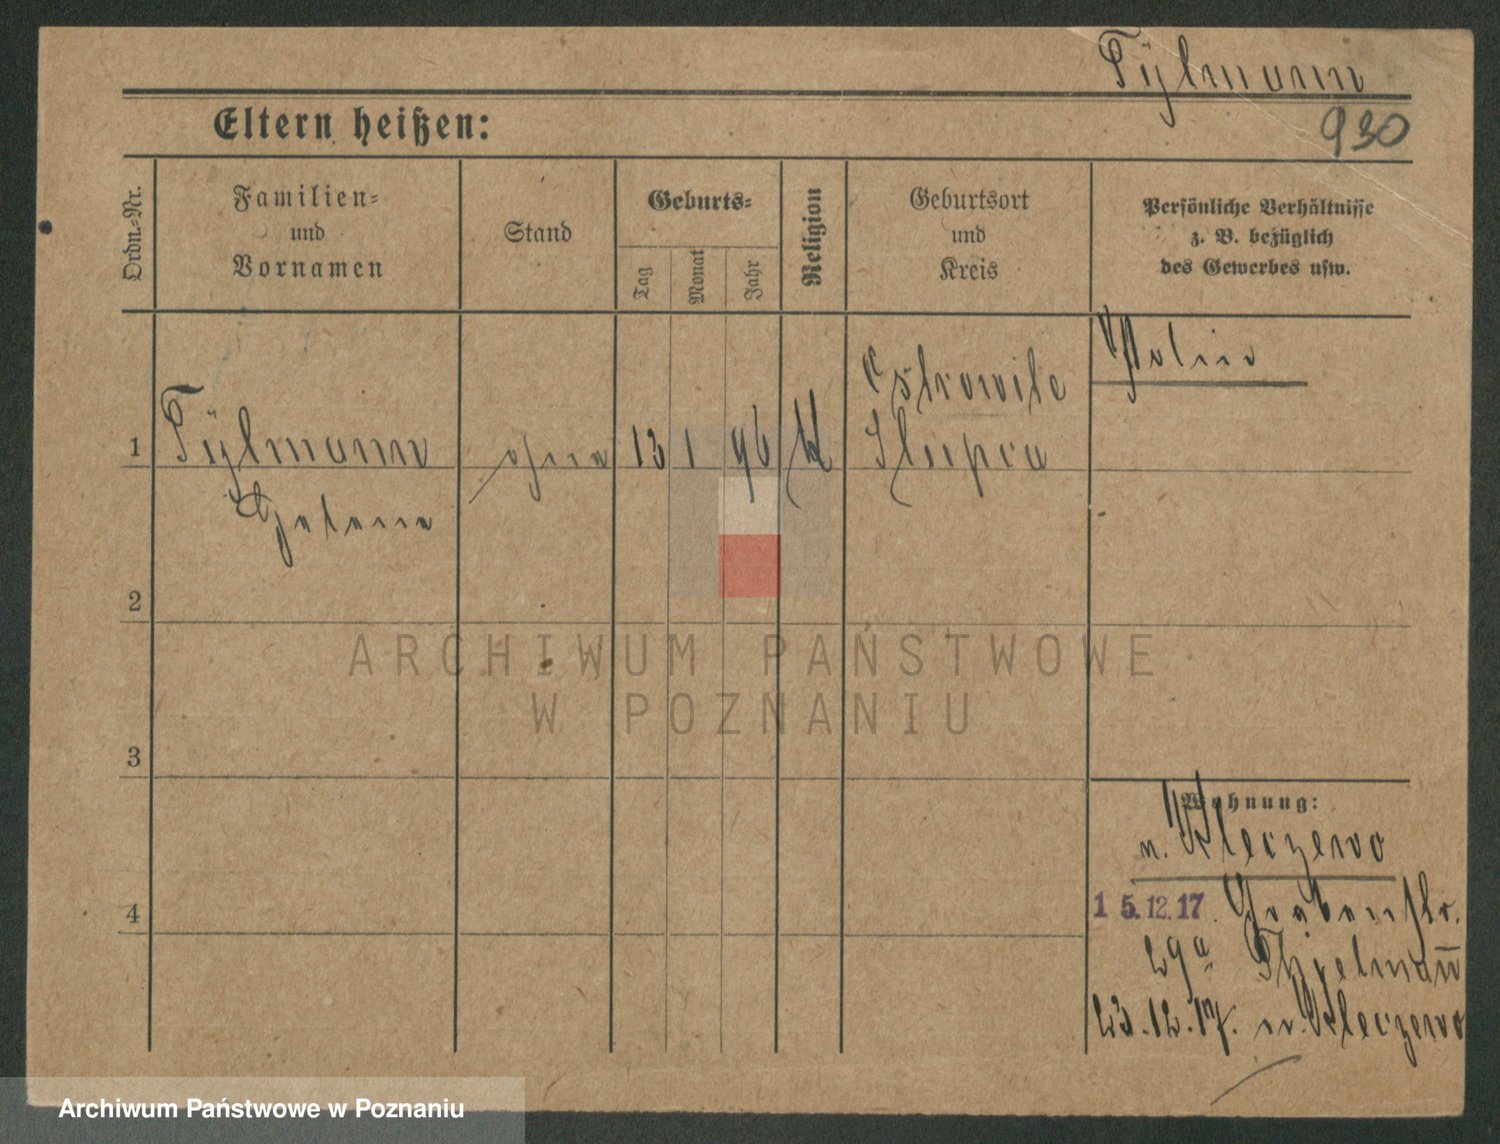 Tylmann
930
Eltern heißen:
Ordn.-Nr.
Familien-
und
Vornamen
Stand
Geburts-
Tag
Monat
Jahr
Religion
Geburtsort
und
Kreis
Persönliche Verhältnisse
z. B. bezüglich
des Gewerbes usw.
Polin
Ostrowite
1 Tylmann ohne 13 1 96 k Slupca
Helene
2
ARCHIWUM PAŃSTWOWE
W POZNANIU
3
Wohnung:
n. Kleczewo
15.12.17. Grabenstr.
4
29a Thielmann
23.12.17. n. Kleczewo
Archiwum Państwowe w Poznaniu